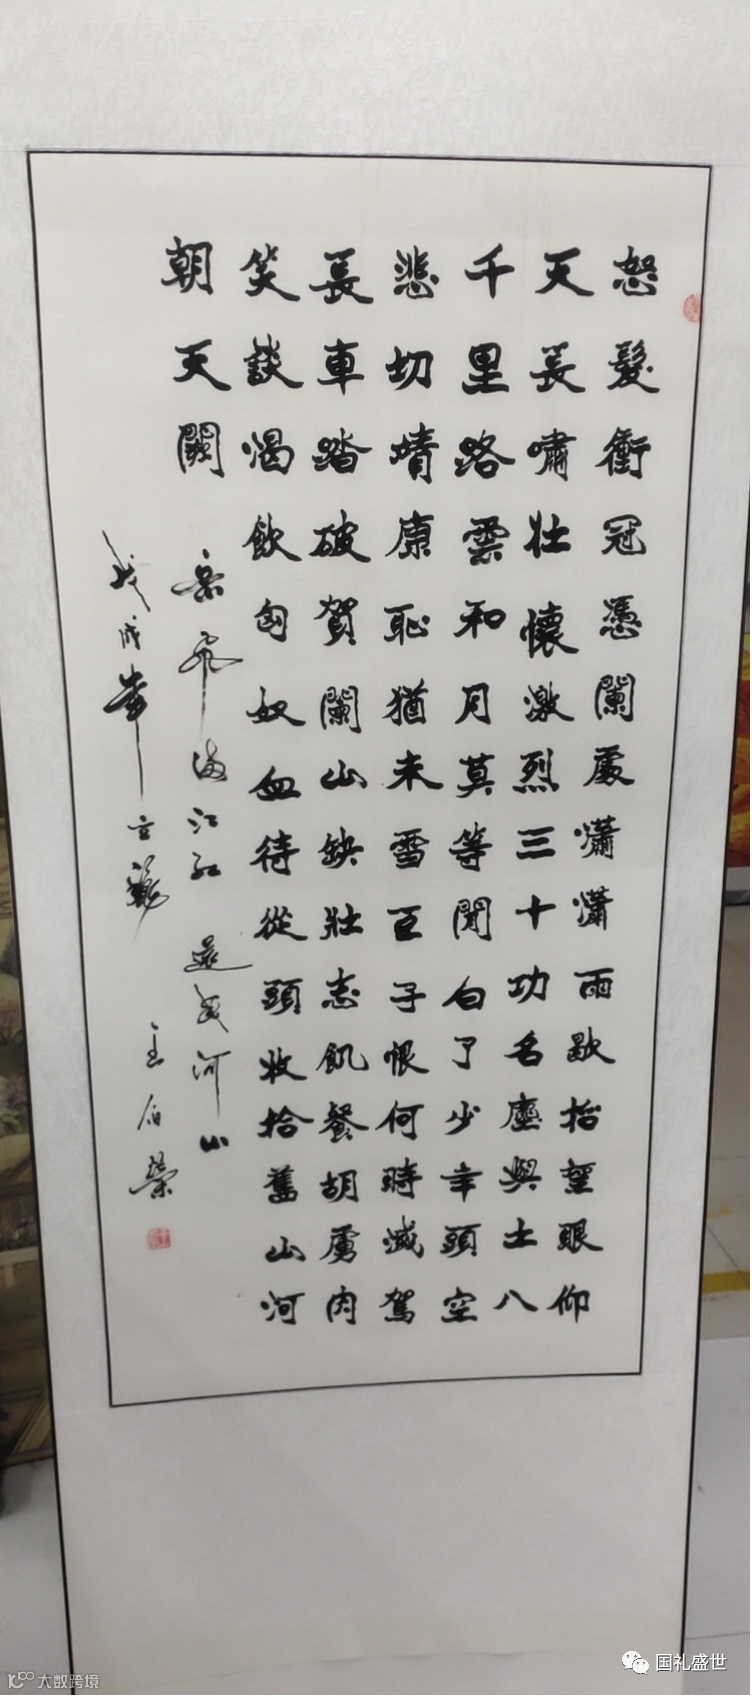 怒髮衝冠憑闌處瀟瀟雨歇抬望眼仰
天長嘯壯懷激烈三十功名塵與土八
千里路雲和月莫等閒白了少年頭空
悲切靖康恥猶未雪臣子恨何時滅駕
長車踏破賀闌山缺壯志飢餐胡虜肉
笑談渴飲匈奴血待從頭收拾舊山河
朝天闕 岳飛滿江红 還我河山
戊戌年 王伯榮
国礼盛世
大数跨境